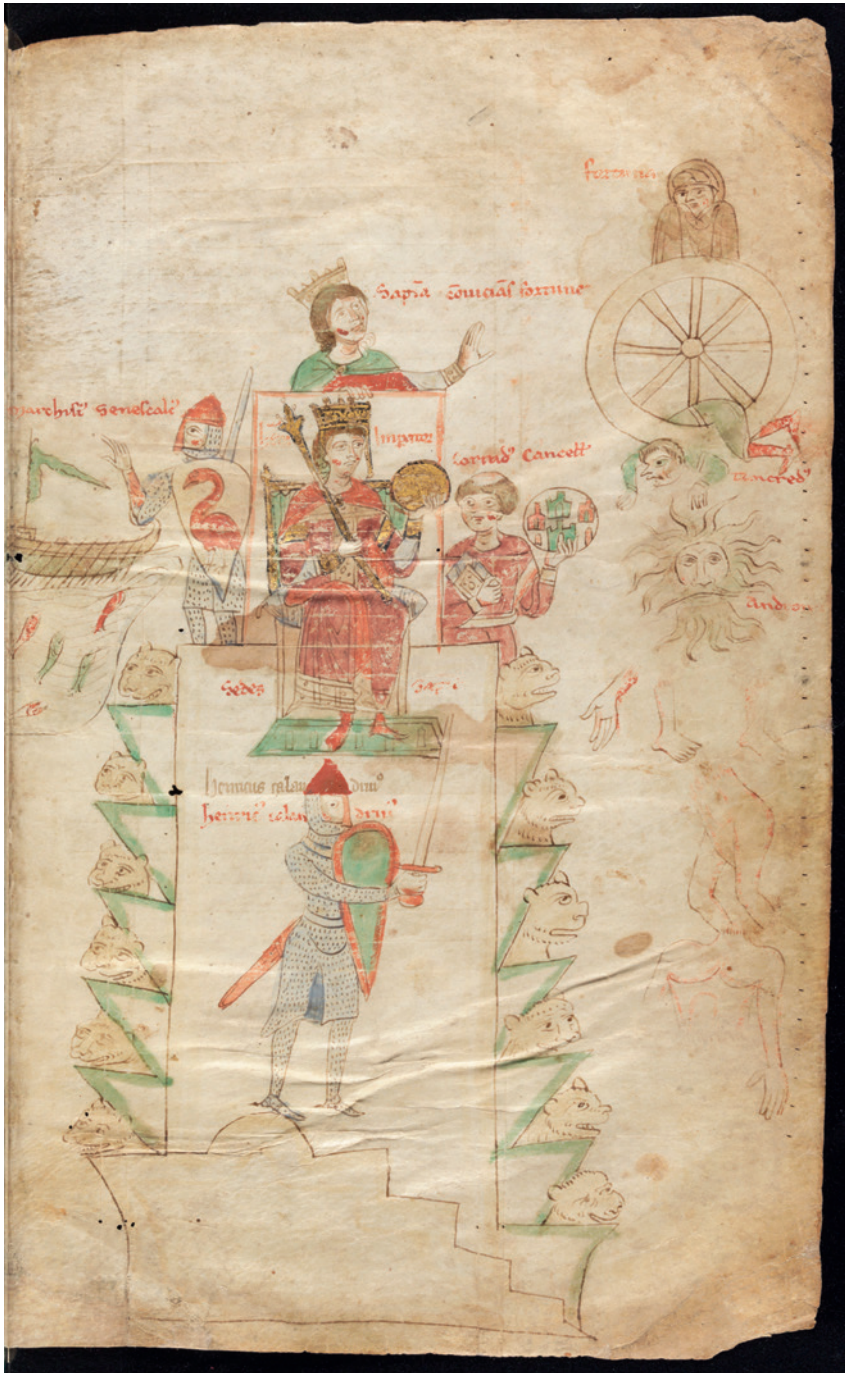 fortuna
Sapīa cōuiciās fortune
marchis' Senescalc'
Imperator
Corrad' Cancell'
tancred'
Andro
Sedes Sap
henricus calan drin'
henric' calan drin'